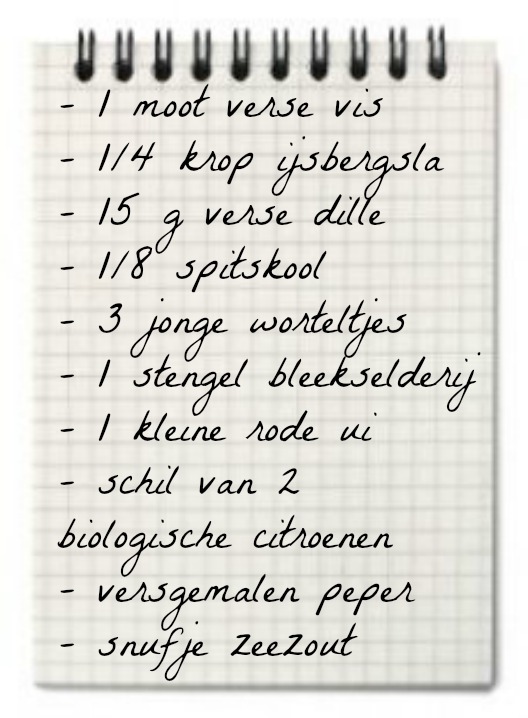 - 1 moot verse vis
- 1/4 krop ijsbergsla
- 15 g verse dille
- 1/8 spitskool
- 3 jonge worteltjes
- 1 stengel bleekselderij
- 1 kleine rode ui
- schil van 2
biologische citroenen
- versgemalen peper
- snufje zeezout